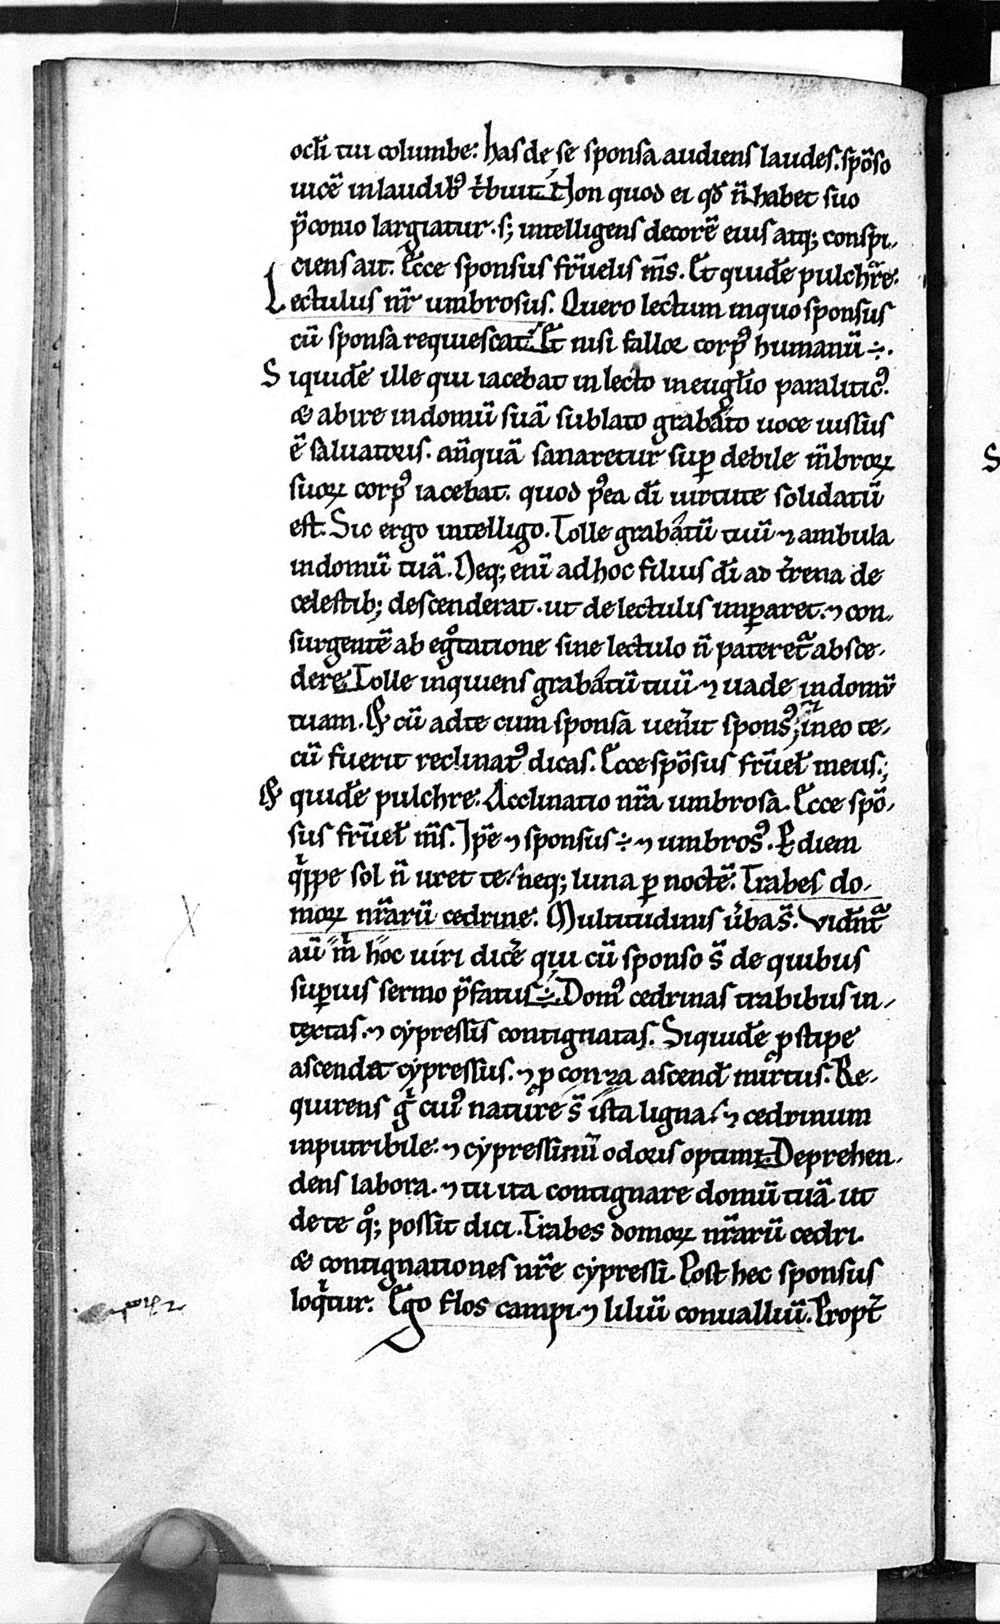 ocłi tui columbe: has de se sponsa audiens laudes. spōso
uicē in laudibꝰ t̄buit. Non quod ei qd̄ n̄ habet suo
p̄conio largiatur. sꝫ intelligens decorē eius atqꝫ conspi-
ciens ait. Ecce sponsus fr̄uelis m̄s. Et quidē pulchre.
Lectulus nr̄ umbrosus. Quero lectum in quo sponsus
cū sponsa requiescat. Et nisi fallor corpꝰ humanū ÷.
Siquidē ille qui iacebat in lecto in euḡlio paraliticꝰ.
& abire in domū suā sublato grabato uoce iussus
ē saluatoris. anꝗ̄uā sanaretur suꝑ debile m̄broꝝ
suoꝝ corpꝰ iacebat. quod pꝰea dī uirtute solidatū
est. Sic ergo intelligo. Tolle grabatū tuū ⁊ ambula
in domū tuā. Neqꝫ enī ad hoc filius dī ad t̄rena de
celestibꝫ descenderat. ut de lectulis imꝑaret. ⁊ con-
surgentē ab eg̊tatione sine lectulo n̄ pateret᷑ absce-
dere. Tolle inquiens grabatū tuū ⁊ uade in domū
tuam. & cū ad te cum sponsa uen̄it sponsꝰ, ⁊ in eo te-
cū fuerit reclinatꝰ dicas. Ecce spōsus fr̄uel̄ meus.
& quidē pulchre. Acclinatio nr̄a umbrosa. Ecce spō-
sus fr̄uel̄ m̄s. Ip̄e ⁊ sponsus ÷ ⁊ umbrosꝰ. Ꝑ diem
q̇ppe sol n̄ uret te. neqꝫ luna ꝑ noctē. Trabes do-
moꝝ nr̄arū cedrine. Multitudinis ūba s̄. Vidn̄t᷑
aū m̄ hoc uiri dic̄e qui cū sponso s̄ de quibus
suꝑius sermo p̄fatus ÷. Domꝰ cedrinas trabibus in-
textas. ⁊ cypressis contignatas. Siquidē ꝓ stipe
ascendet cypressus. ⁊ ꝓ conyza ascend̄ mirtus. Re-
quirens g̊ cuiꝰ nature s̄ ista ligna. ⁊ cedrinum
inputribile. ⁊ cypressinū odoris optimi. Deprehen-
dens labora. ⁊ tu ita contignare domū tuā ut
de te q̊qꝫ possit dici. Trabes domoꝝ nr̄arū cedri.
& contignationes nr̄e cypressi. Post hec sponsus
loq̇tur. Ego flos campi ⁊ liliū conualliū. Propt̄